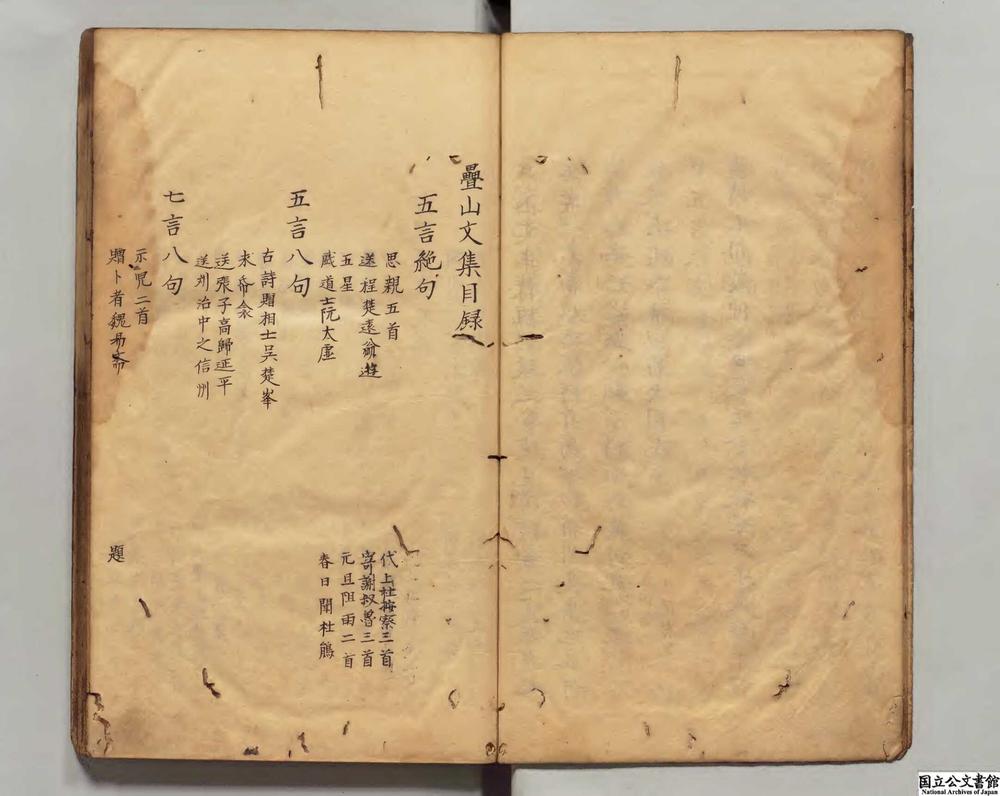 疊山文集目録
五言絶句
思親五首
代上杜按察三首
送程楚遠翁遊
寄謝叔魯三首
五星
元旦阻雨二首
戯道士阮太虚
春日聞杜鵑
五言八句
古詩贈相士吴楚峯
求𥿄衾
送張子高歸延平
送州治中之信州
七言八句
示児二首
贈卜者魏易斎
題
国立公文書館
National Archives of Japan